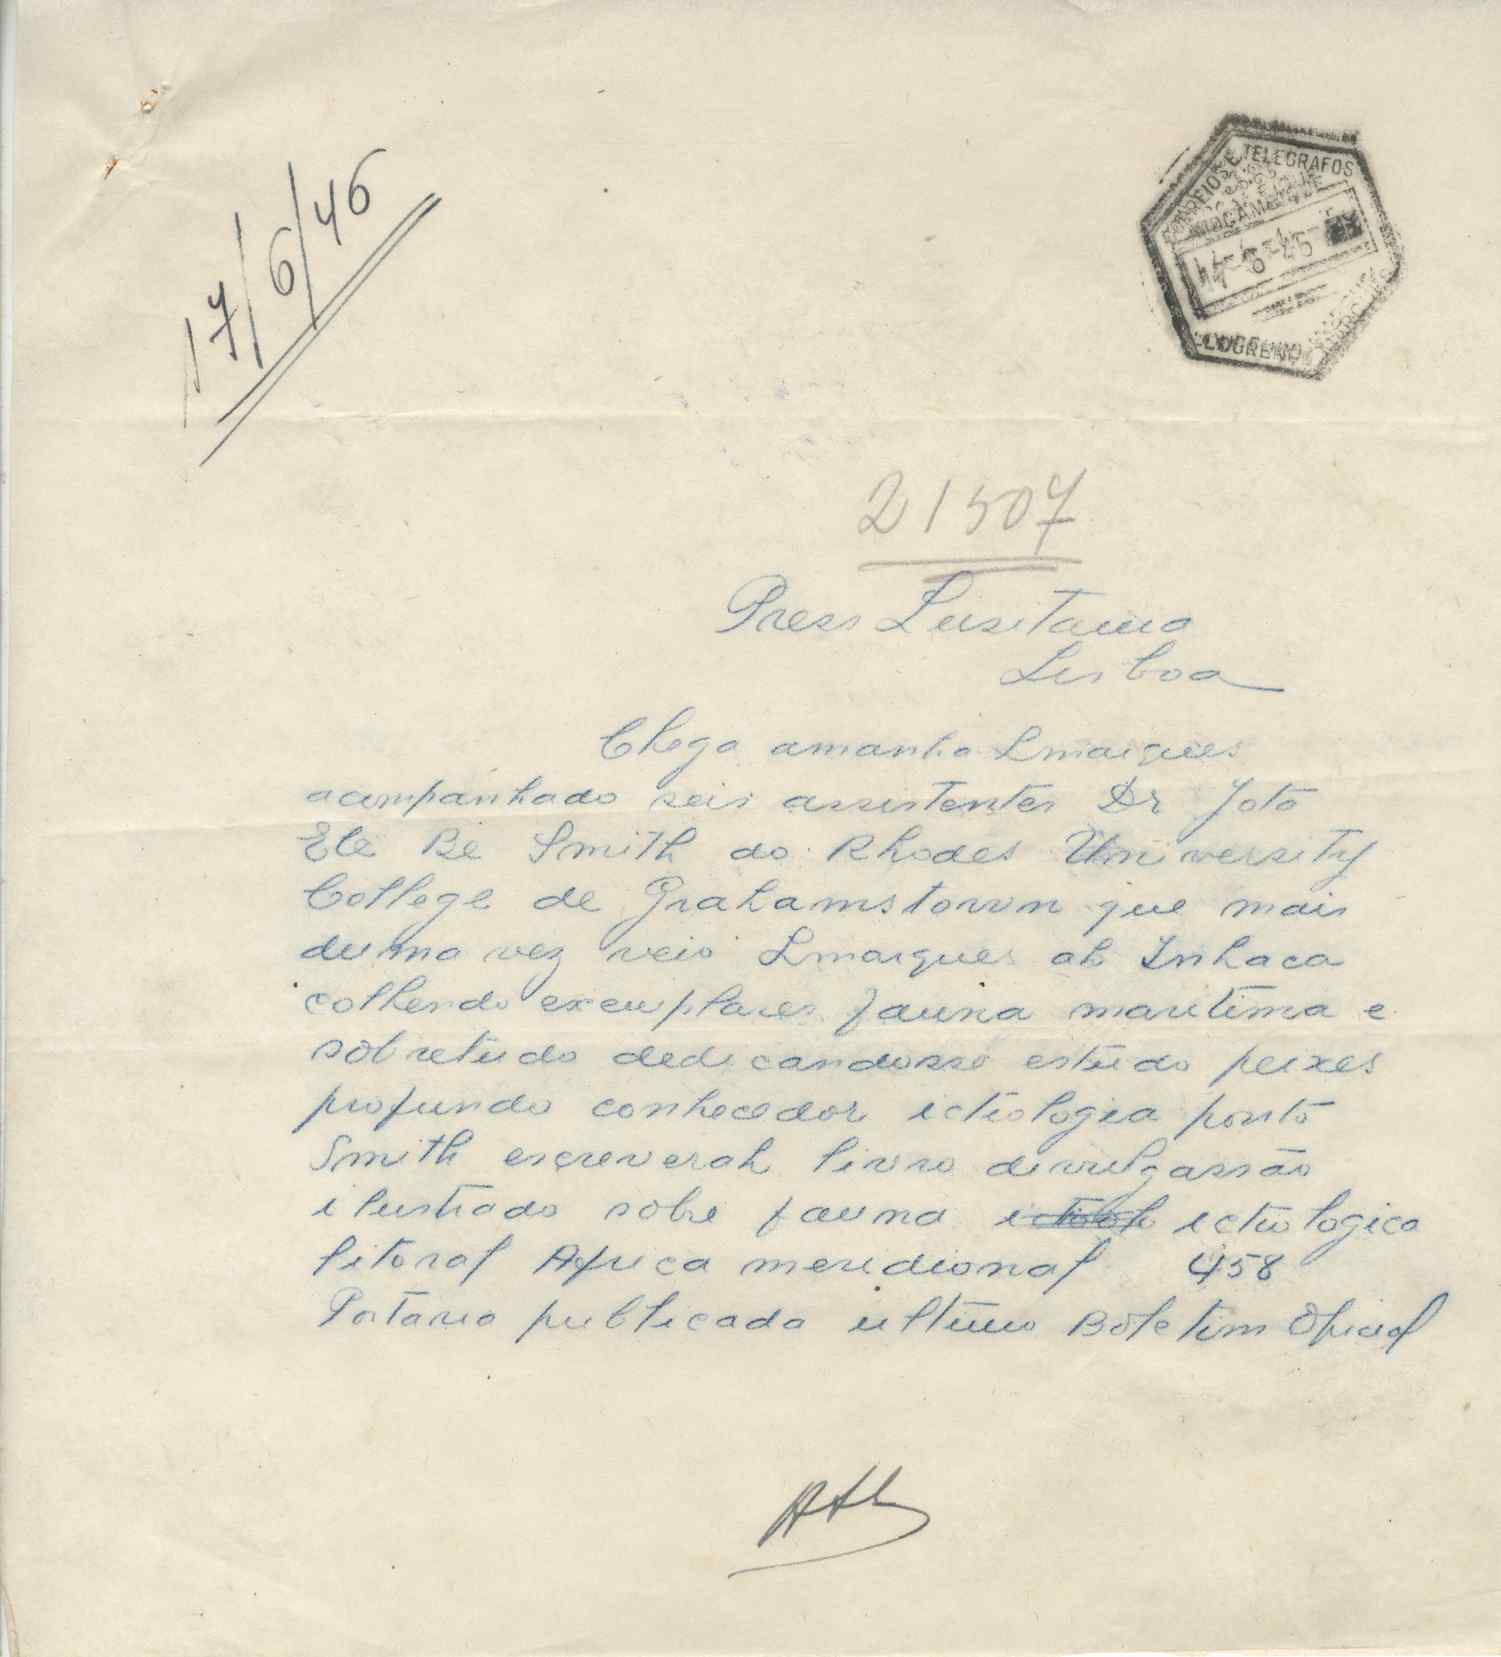 17/6/46
CORREIOS E TELEGRAFOS
MOÇAMBIQUE
LOURENÇO MARQUES
21507
Press Lusitano
Lisboa
Chega amanhã Lmarques
acompanhado seis assistentes Dr Jota
Ele Bê Smith do Rhodes University
College de Grahamstown que mais
duma vez veio Lmarques ah Inhaca
colhendo exemplares fauna maritima e
sobretudo dedicandosse estudo peixes
profundo conhecedor ictiologia ponto
Smith escreverah livro divulgassão
ilustrado sobre fauna ictiologica
litoral Africa meridional 458
Portaria publicada ultimo Boletim Oficial